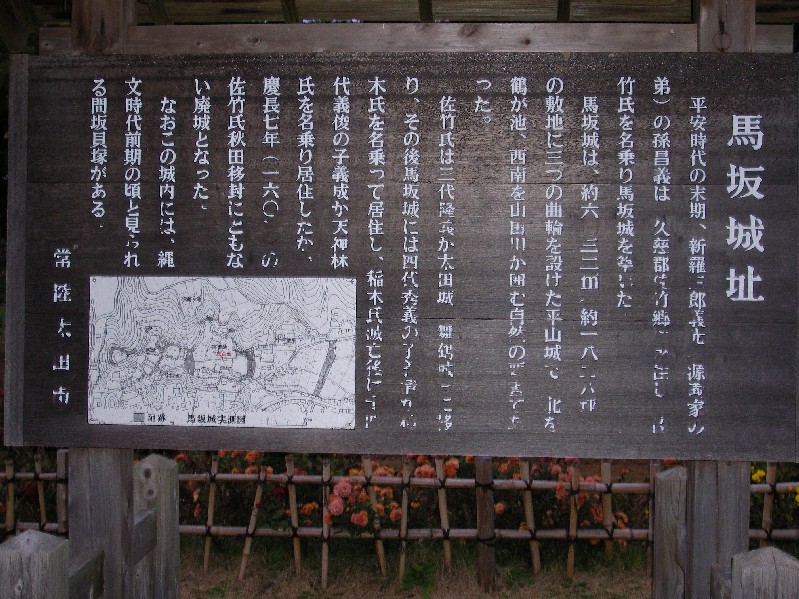 馬坂城址
平安時代の末期、新羅三郎義光（源義家の
弟）の孫昌義は、久慈郡佐竹郷に
竹氏を名乗り馬坂城を築いた
馬坂城は、約六
の敷地に三つの曲輪を設けた平山城で、北を
鶴が池、西南を山田川が囲む自然の
った。
佐竹氏は三代隆義が太田城
り、その後馬坂城には四代秀義の子
木氏を名乗って居住し、稲木氏滅亡後は
代義俊の子義成が天神林
氏を名乗り居住したが、
慶長七年（一六〇 の
佐竹氏秋田移封にともな
い廃城となった。
なおこの城内には、縄
文時代前期の頃と見られ
る間坂貝塚がある。
常陸太田市
馬坂城実測図